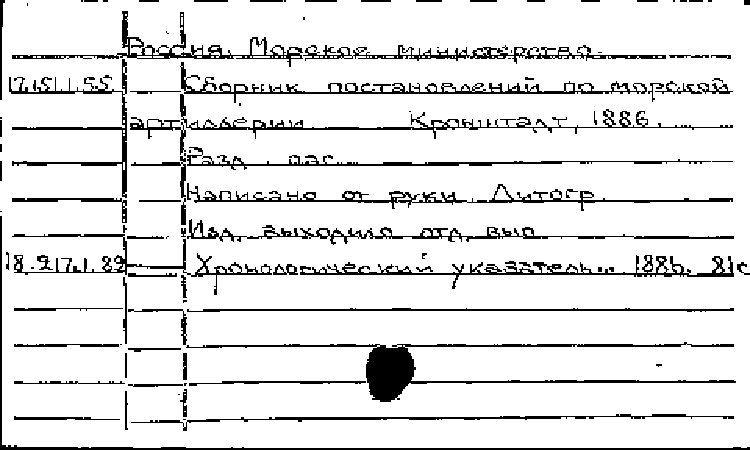 Россия. Морское министерство.
17.151.1.55 Сборник постановлений по морской
артиллерии Кронштадт, 1886.
Разд. паг.
Написано от руки. Литогр.
Изд. выходило отд. вып.
18.217.1.82 Хронологический указатель.. 1886. 81с